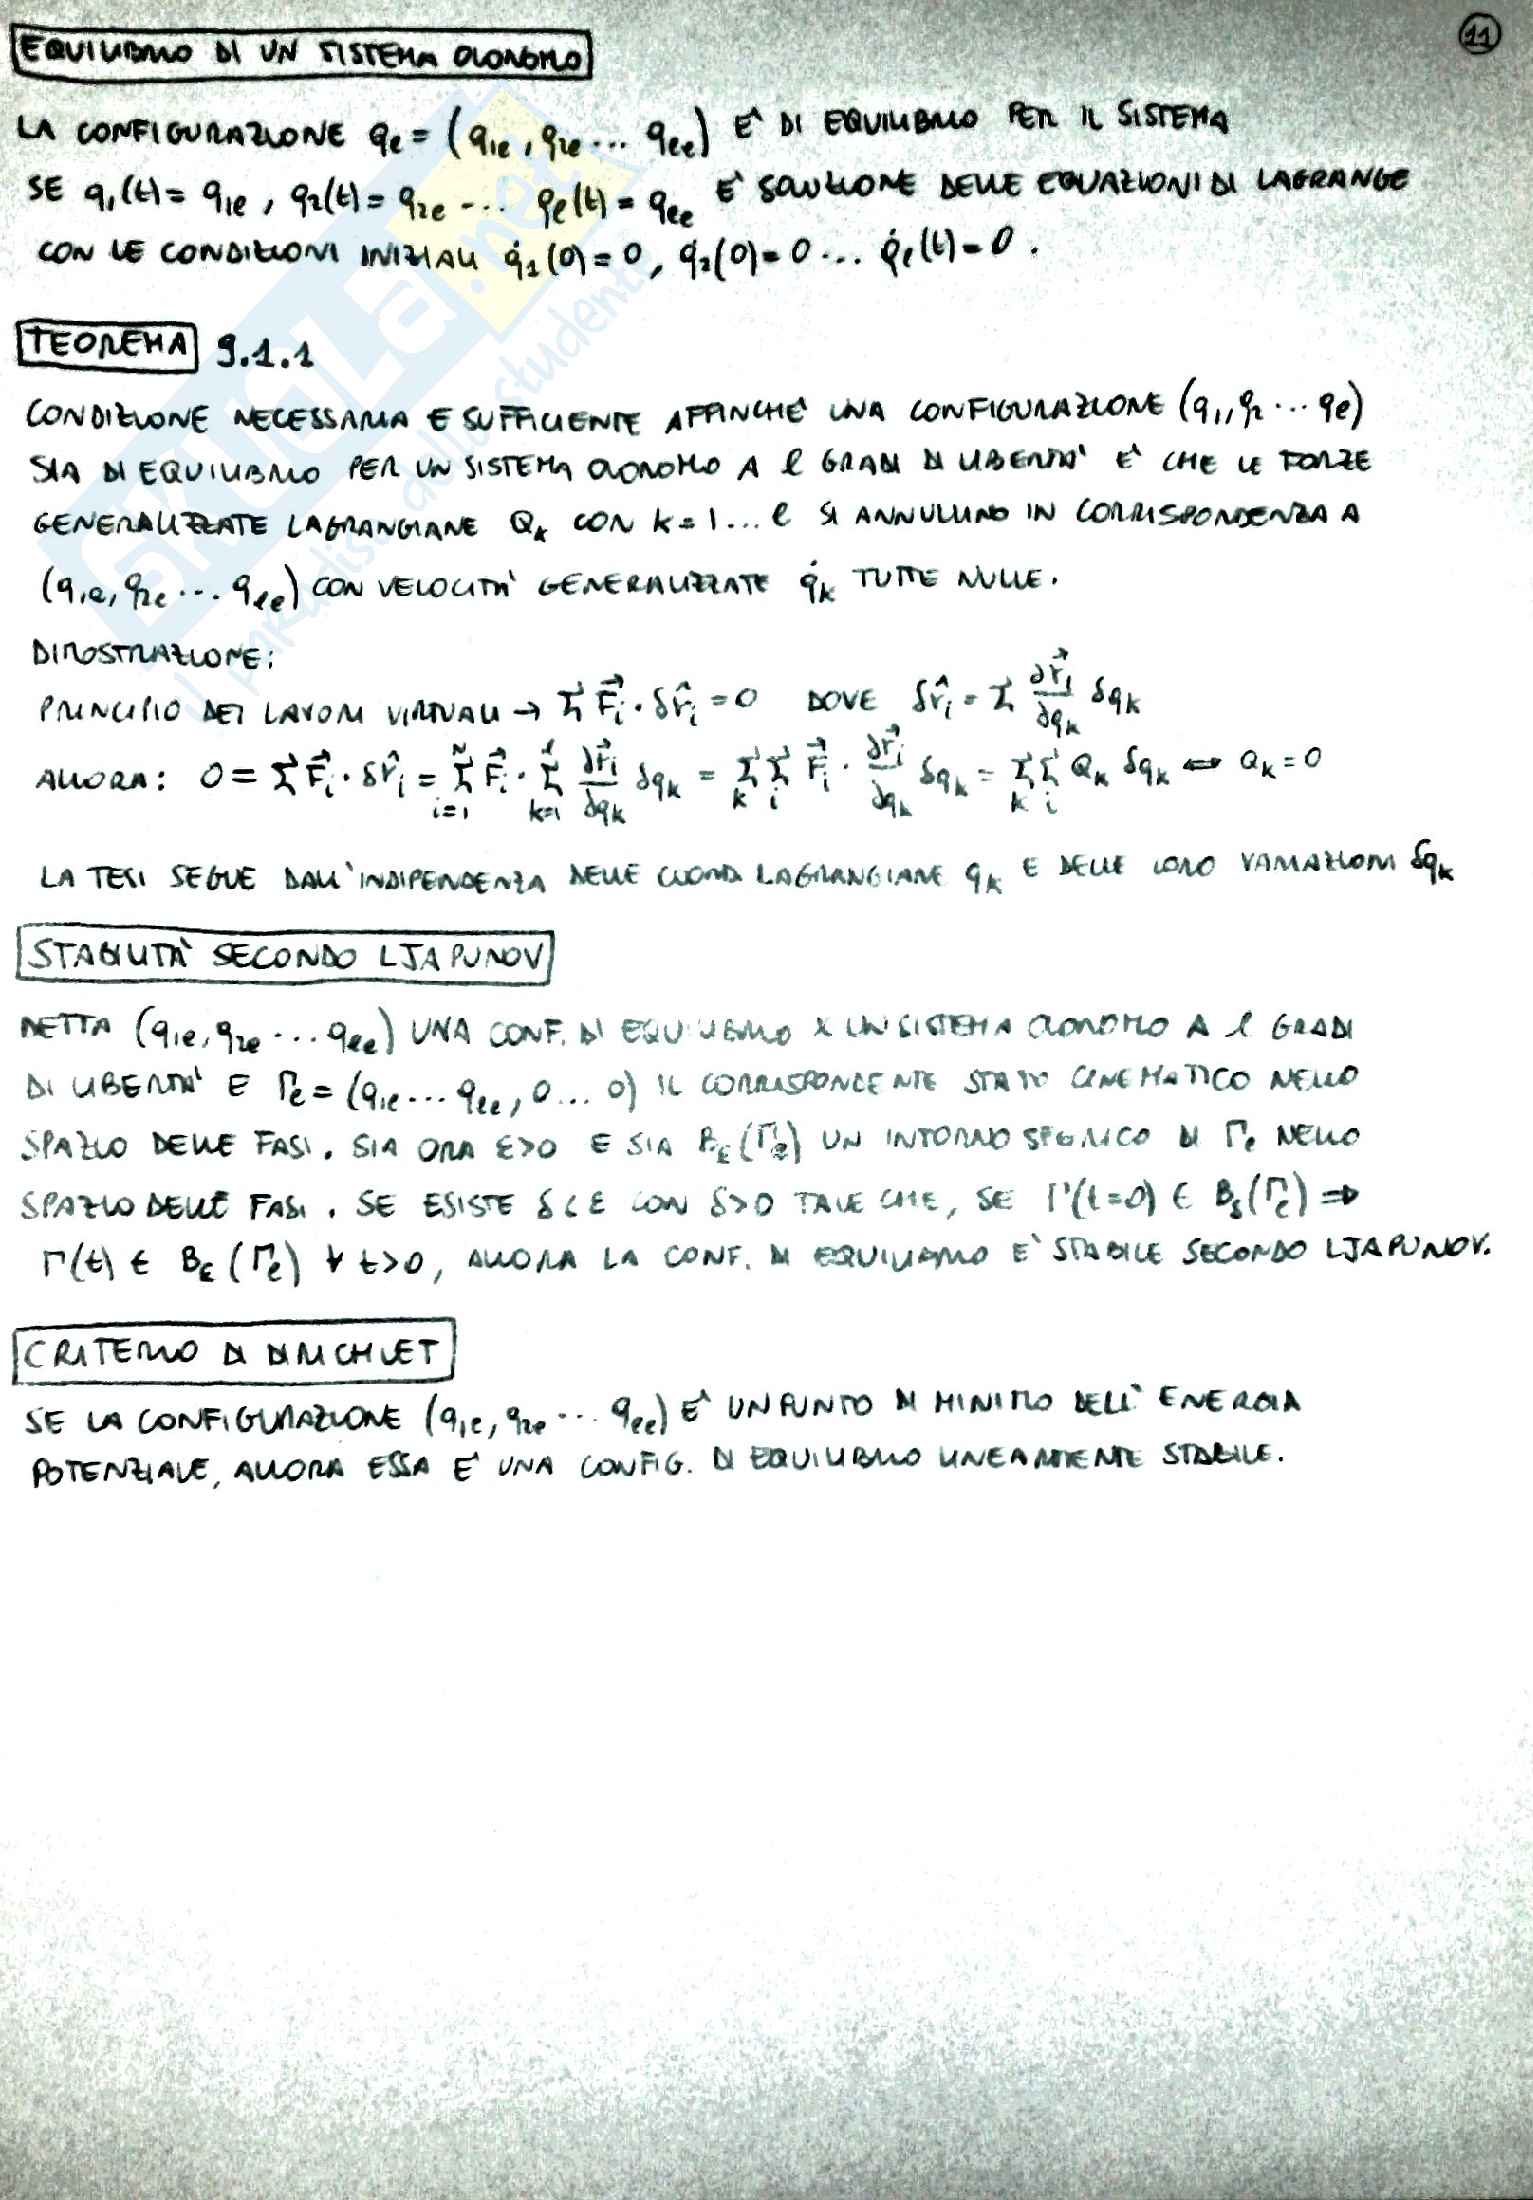 11
EQUILIBRIO DI UN SISTEMA OLONOMO
LA CONFIGURAZIONE qe = (q1e, q2e ... qℓe) E' DI EQUILIBRIO PER IL SISTEMA
SE q1(t) = q1e, q2(t) = q2e ... qℓ(t) = qℓe E' SOLUZIONE DELLE EQUAZIONI DI LAGRANGE
CON LE CONDIZIONI INIZIALI q̇1(0) = 0, q̇2(0) = 0 ... q̇ℓ(t) = 0.
TEOREMA 9.1.1
CONDIZIONE NECESSARIA E SUFFICIENTE AFFINCHE' UNA CONFIGURAZIONE (q1, q2 ... qℓ)
SIA DI EQUILIBRIO PER UN SISTEMA OLONOMO A ℓ GRADI DI LIBERTA' E' CHE LE FORZE
GENERALIZZATE LAGRANGIANE Qk CON k = 1 ... ℓ SI ANNULLINO IN CORRISPONDENZA A
(q1e, q2e ... qℓe) CON VELOCITA' GENERALIZZATE q̇k TUTTE NULLE.
DIMOSTRAZIONE:
PRINCIPIO DEI LAVORI VIRTUALI → Σ F⃗i · δr̂i = 0 DOVE δr̂i = Σ ∂r⃗i/∂qk δqk
ALLORA: 0 = Σ F⃗i · δr̂i = Σ_{i=1}^{N} F⃗i · Σ_{k=1}^{ℓ} ∂r⃗i/∂qk δqk = Σ_k Σ_i F⃗i · ∂r⃗i/∂qk δqk = Σ_k Σ_i Qk δqk ⇔ Qk = 0
LA TESI SEGUE DALL'INDIPENDENZA DELLE COORD LAGRANGIANE qk E DELLE LORO VARIAZIONI δqk
STABILITA' SECONDO LJAPUNOV
DETTA (q1e, q2e ... qℓe) UNA CONF. DI EQUILIBRIO X UN SISTEMA OLONOMO A ℓ GRADI
DI LIBERTA' E Γe = (q1e ... qℓe, 0 ... 0) IL CORRISPONDENTE STATO CINEMATICO NELLO
SPAZIO DELLE FASI. SIA ORA ε>0 E SIA Bε(Γe) UN INTORNO SFERICO DI Γe NELLO
SPAZIO DELLE FASI. SE ESISTE δ<ε CON δ>0 TALE CHE, SE Γ(t=0) ∈ Bδ(Γe) ⇒
Γ(t) ∈ Bε(Γe) ∀ t>0, ALLORA LA CONF. DI EQUILIBRIO E' STABILE SECONDO LJAPUNOV.
CRITERIO DI DIRICHLET
SE LA CONFIGURAZIONE (q1e, q2e ... qℓe) E' UN PUNTO DI MINIMO DELL'ENERGIA
POTENZIALE, ALLORA ESSA E' UNA CONFIG. DI EQUILIBRIO LINEARMENTE STABILE.
SKUOLa.net
il paradiso dello studente